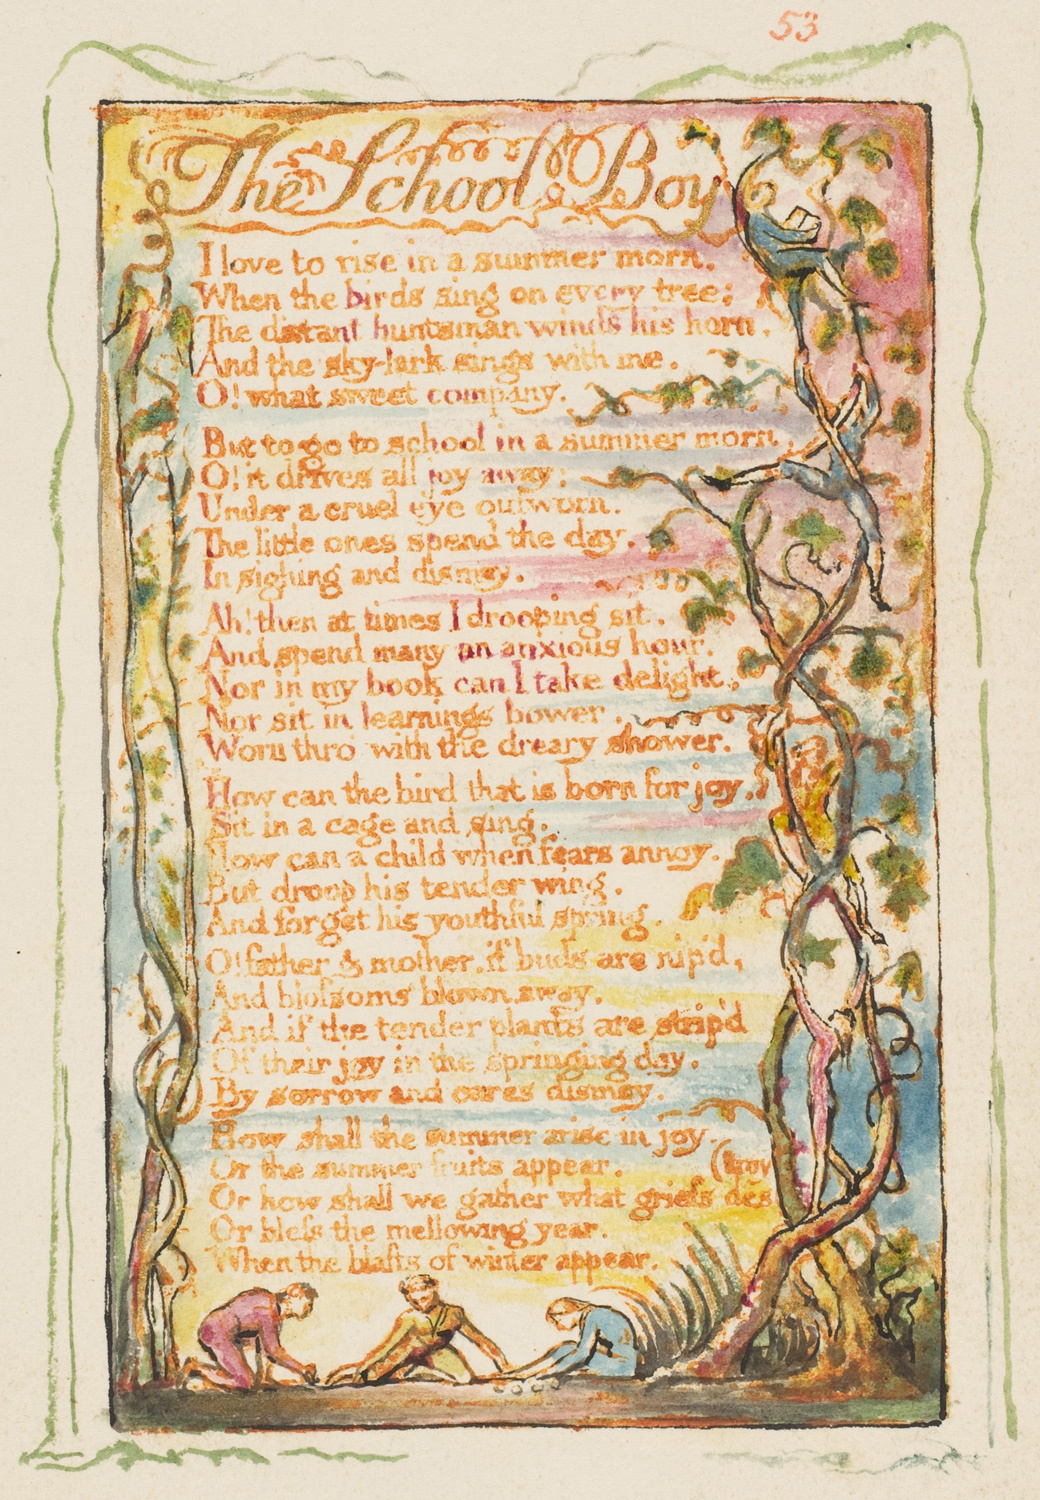 53
The School Boy
I love to rise in a summer morn.
When the birds sing on every tree;
The distant huntsman winds his horn.
And the sky-lark sings with me.
O! what sweet company.
But to go to school in a summer morn,
O! it drives all joy away;
Under a cruel eye outworn.
The little ones spend the day.
In sighing and dismay.
Ah! then at times I drooping sit.
And spend many an anxious hour.
Nor in my book can I take delight,
Nor sit in learnings bower.
Worn thro' with the dreary shower.
How can the bird that is born for joy,
Sit in a cage and sing.
How can a child when fears annoy.
But droop his tender wing.
And forget his youthful spring.
O! father & mother. if buds are nip'd,
And blossoms blown away.
And if the tender plants are strip'd
Of their joy in the springing day.
By sorrow and cares dismay.
How shall the summer arise in joy.
Or the summer fruits appear.
(troy
Or how shall we gather what griefs des
Or bless the mellowing year.
When the blasts of winter appear.